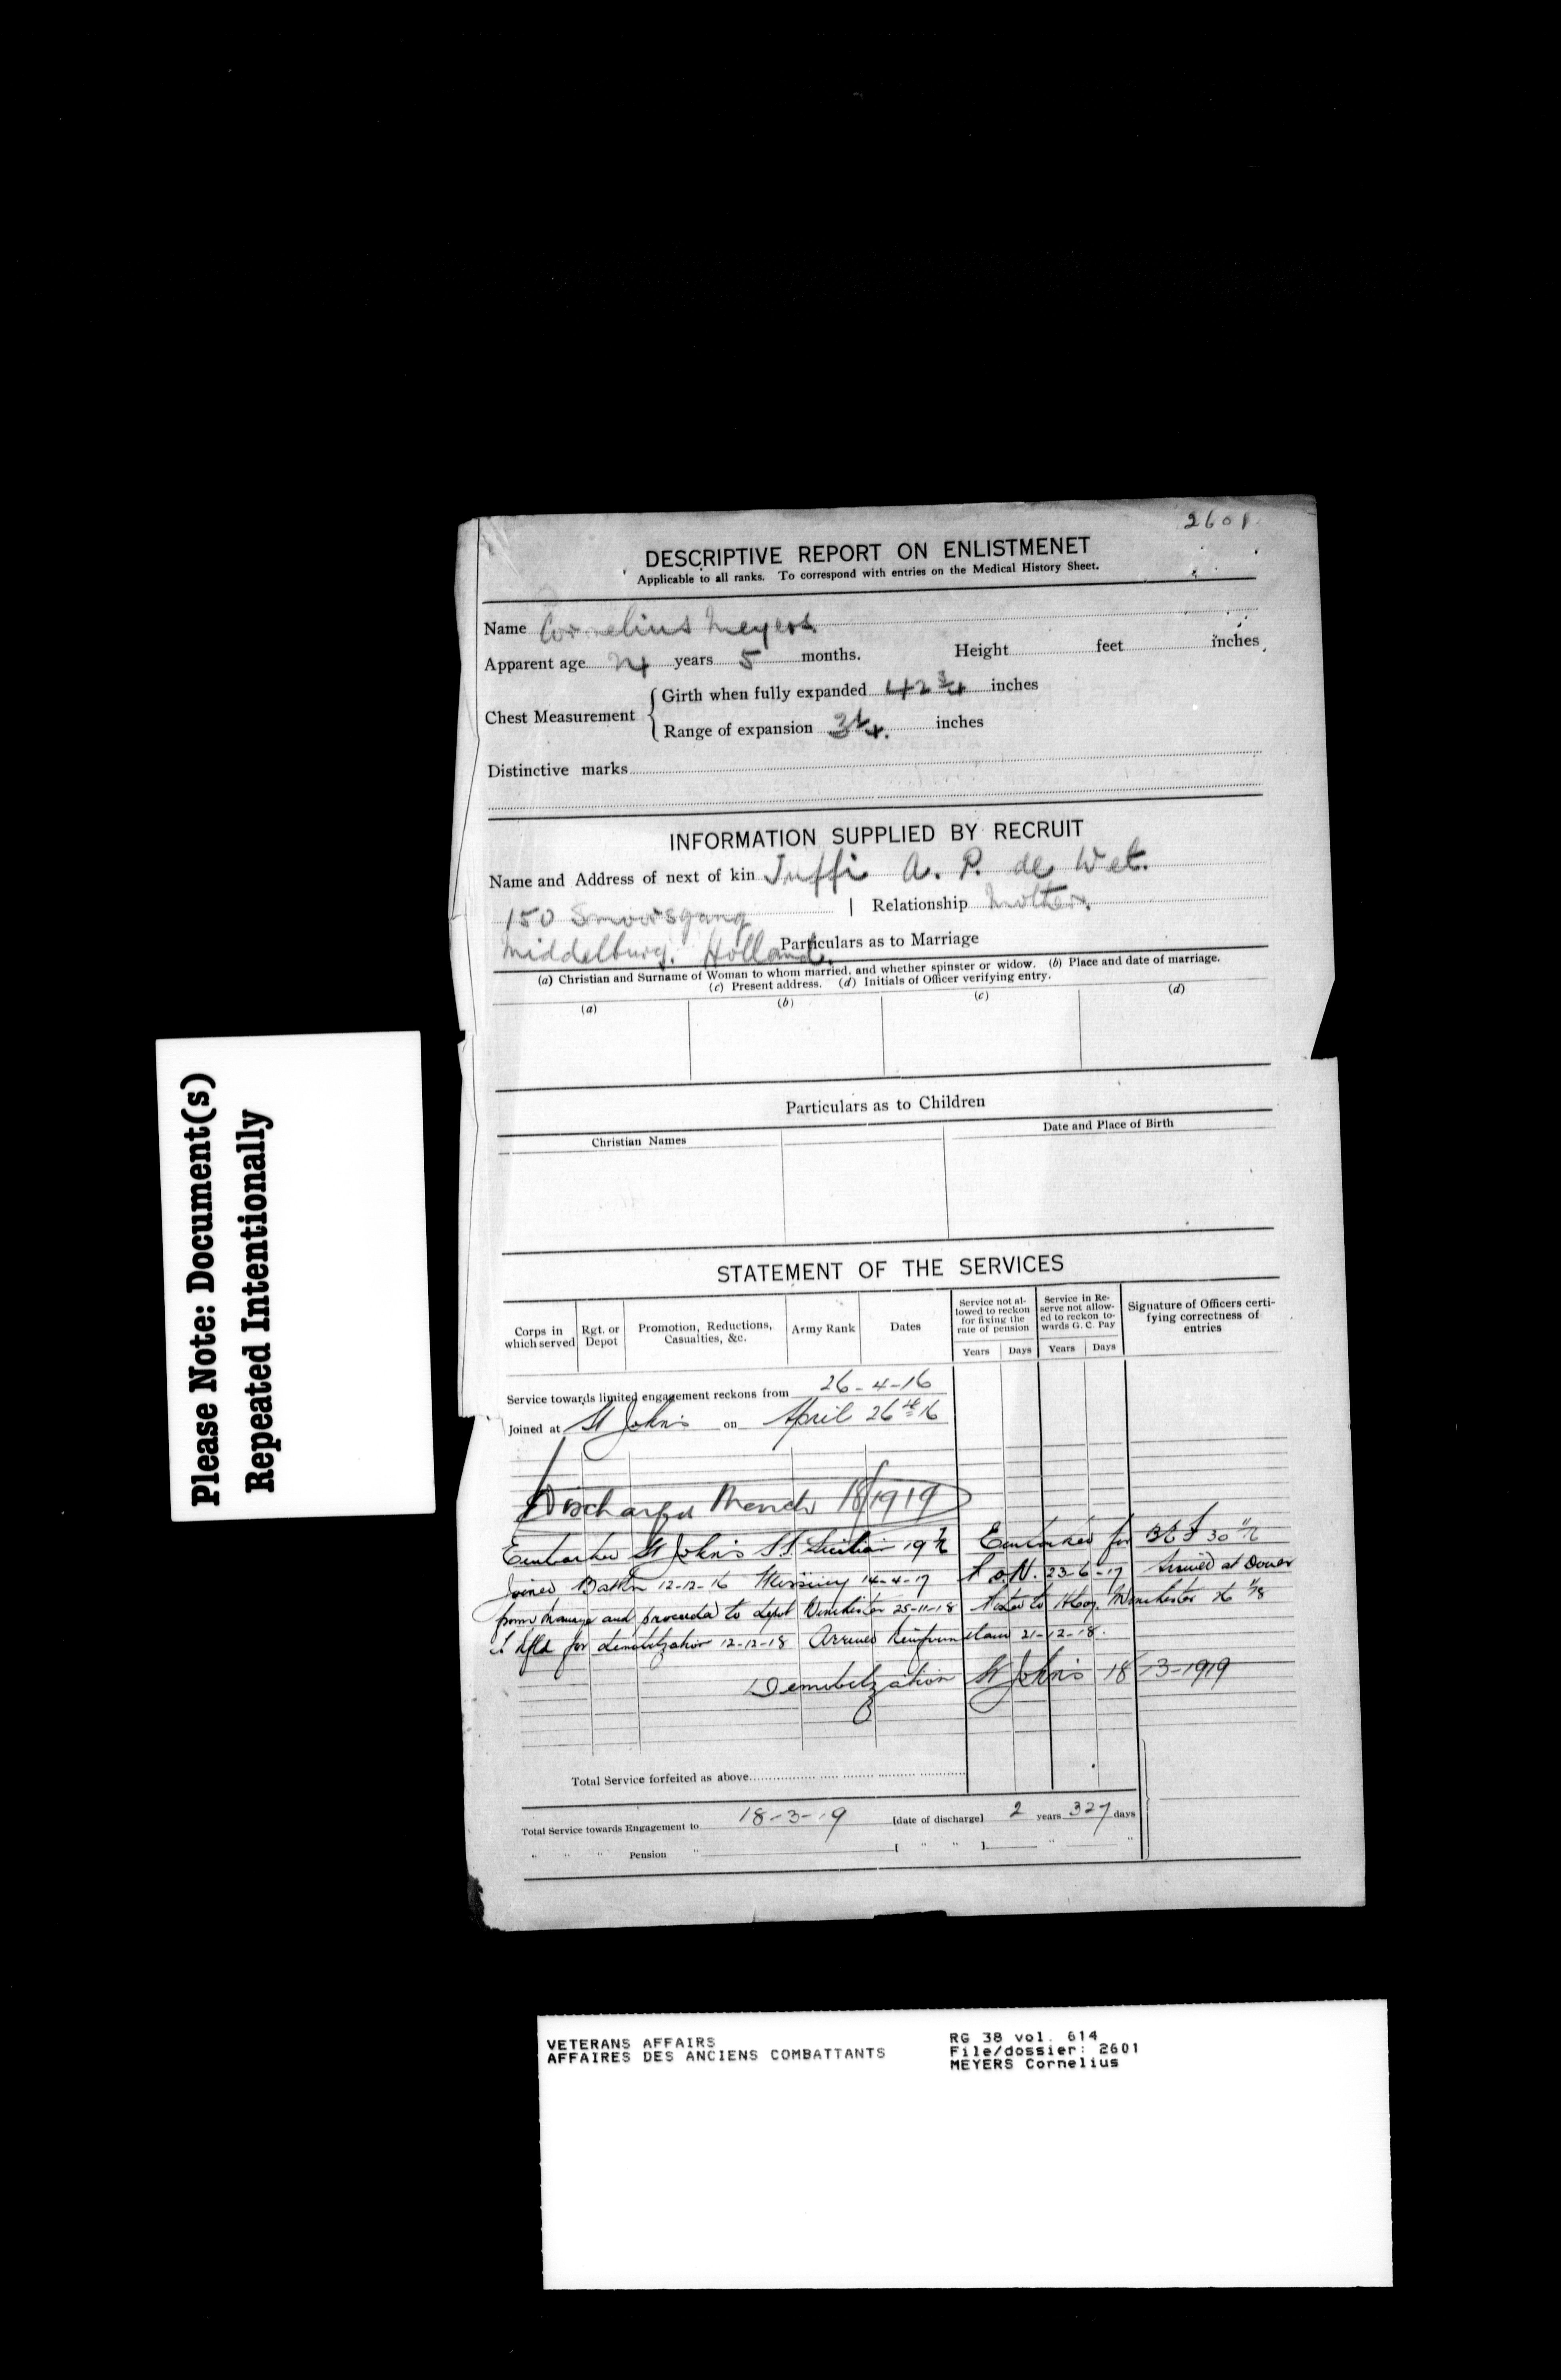 2601
DESCRIPTIVE REPORT ON ENLISTMENET
Applicable to all ranks. To correspond with entries on the Medical History Sheet.
Name Cornelius Meyers.
Apparent age 24 years 5 months. Height feet inches
Chest Measurement { Girth when fully expanded 42 3/4 inches
Range of expansion inches
Distinctive marks
INFORMATION SUPPLIED BY RECRUIT
Name and Address of next of kin Juffi A. P. de Wet.
150 Smoorsgang | Relationship Mother.
Middelburg. Holland.
Particulars as to Marriage
(a) Christian and Surname of Woman to whom married, and whether spinster or widow. (b) Place and date of marriage.
(c) Present address. (d) Initials of Officer verifying entry.
(a) (b) (c) (d)
Particulars as to Children
Christian Names Date and Place of Birth
STATEMENT OF THE SERVICES
Corps in which served Rgt. or Depot Promotion, Reductions, Casualties, &c. Army Rank Dates Service not allowed to reckon for fixing the rate of pension Service in Reserve not allowed to reckon towards G. C. Pay Signature of Officers certifying correctness of entries
Years Days Years Days
Service towards limited engagement reckons from 26-4-16
Joined at St John's on April 26th 16
Discharged March 18/1919
Embarked St John's S.S. Sicilian 19 Embarked for BEF 30
Joined Battn 12-12-16 Missing 14-4-17 P.o.W. 23-6-17 Arrived at Dover
from and proceeded to depot Winchester 25-11-18 to Winchester
for demobilization 12-12-18 Arrived 21-12-18.
Demobilization St John's 18-3-1919
Total Service forfeited as above
Total Service towards Engagement to 18-3-19 [date of discharge] 2 years 327 days
" " " Pension " [ " " ] " "
Please Note: Document(s)
Repeated Intentionally
VETERANS AFFAIRS RG 38 vol. 614
AFFAIRES DES ANCIENS COMBATTANTS File/dossier: 2601
MEYERS Cornelius